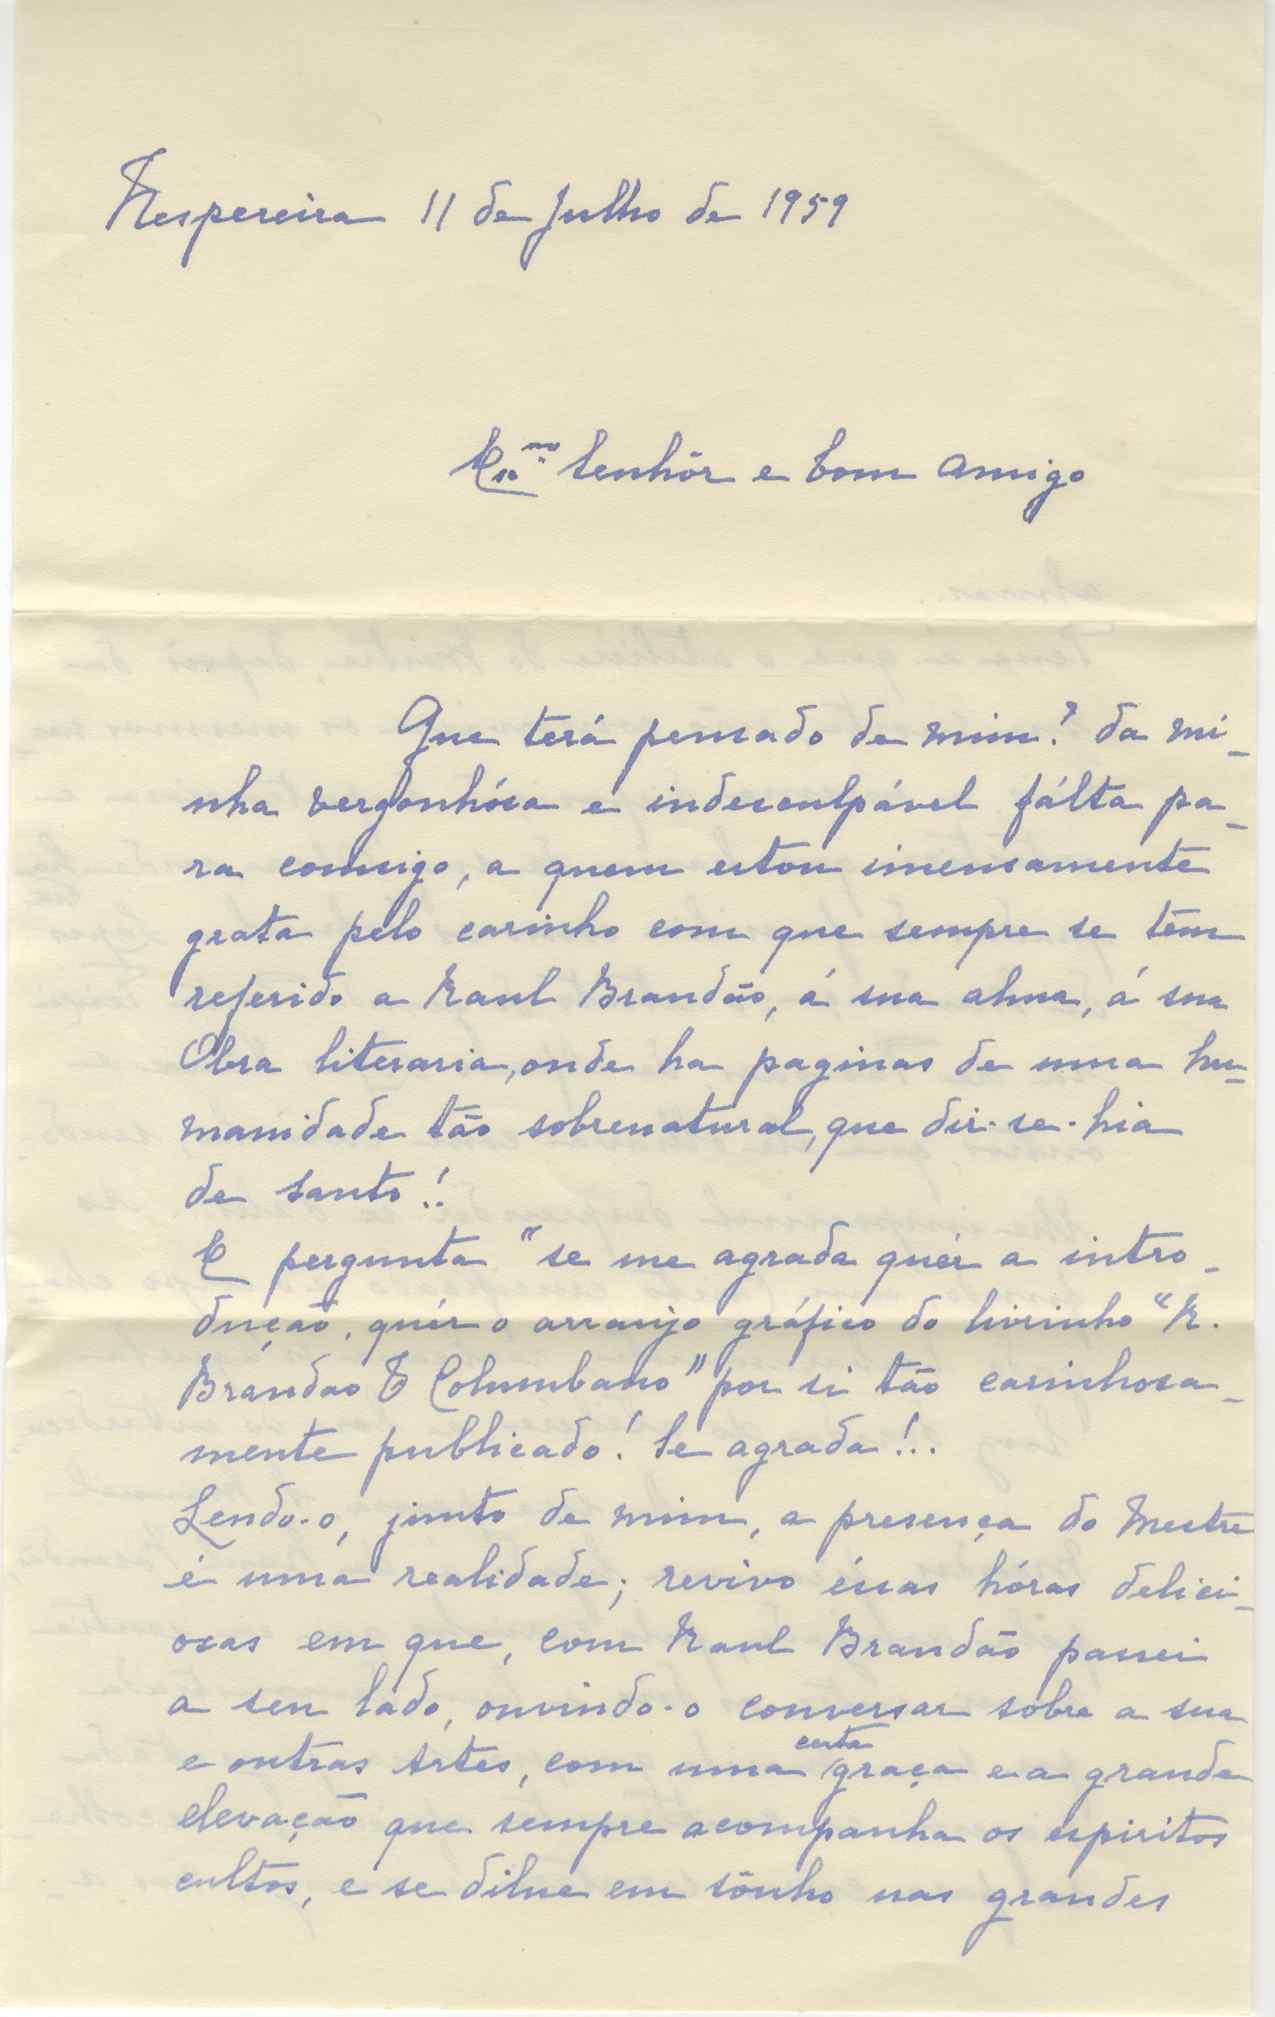 Nespereira 11 de Julho de 1959
Exmo Senhôr e bom amigo
Que terá pensado de mim? da mi-
nha vergonhósa e indesculpável fálta pa-
ra comsigo, a quem estou imensamente
grata pelo carinho com que sempre se tem
referido a Raul Brandão, á sua alma, á sua
Obra literaria, onde ha paginas de uma hu-
manidade tão sobrenatural, que dir-se-hia
de Santo!.
E pergunta "se me agrada quér a intro-
dução, quér o arranjo gráfico do livrinho "R.
Brandão & Columbano" por si tão carinhosa-
mente publicado! Se agrada!..
Lendo-o, junto de mim, a presença do Mestre
é uma realidade; revivo éssas hóras delici-
osas em que, com Raul Brandão passei
a seu lado, ouvindo-o conversar sobre a sua
e outras Artes, com uma certa graça e a grande
elevação que sempre acompanha os espiritos
cultos, e se dilue em sônho nas grandes